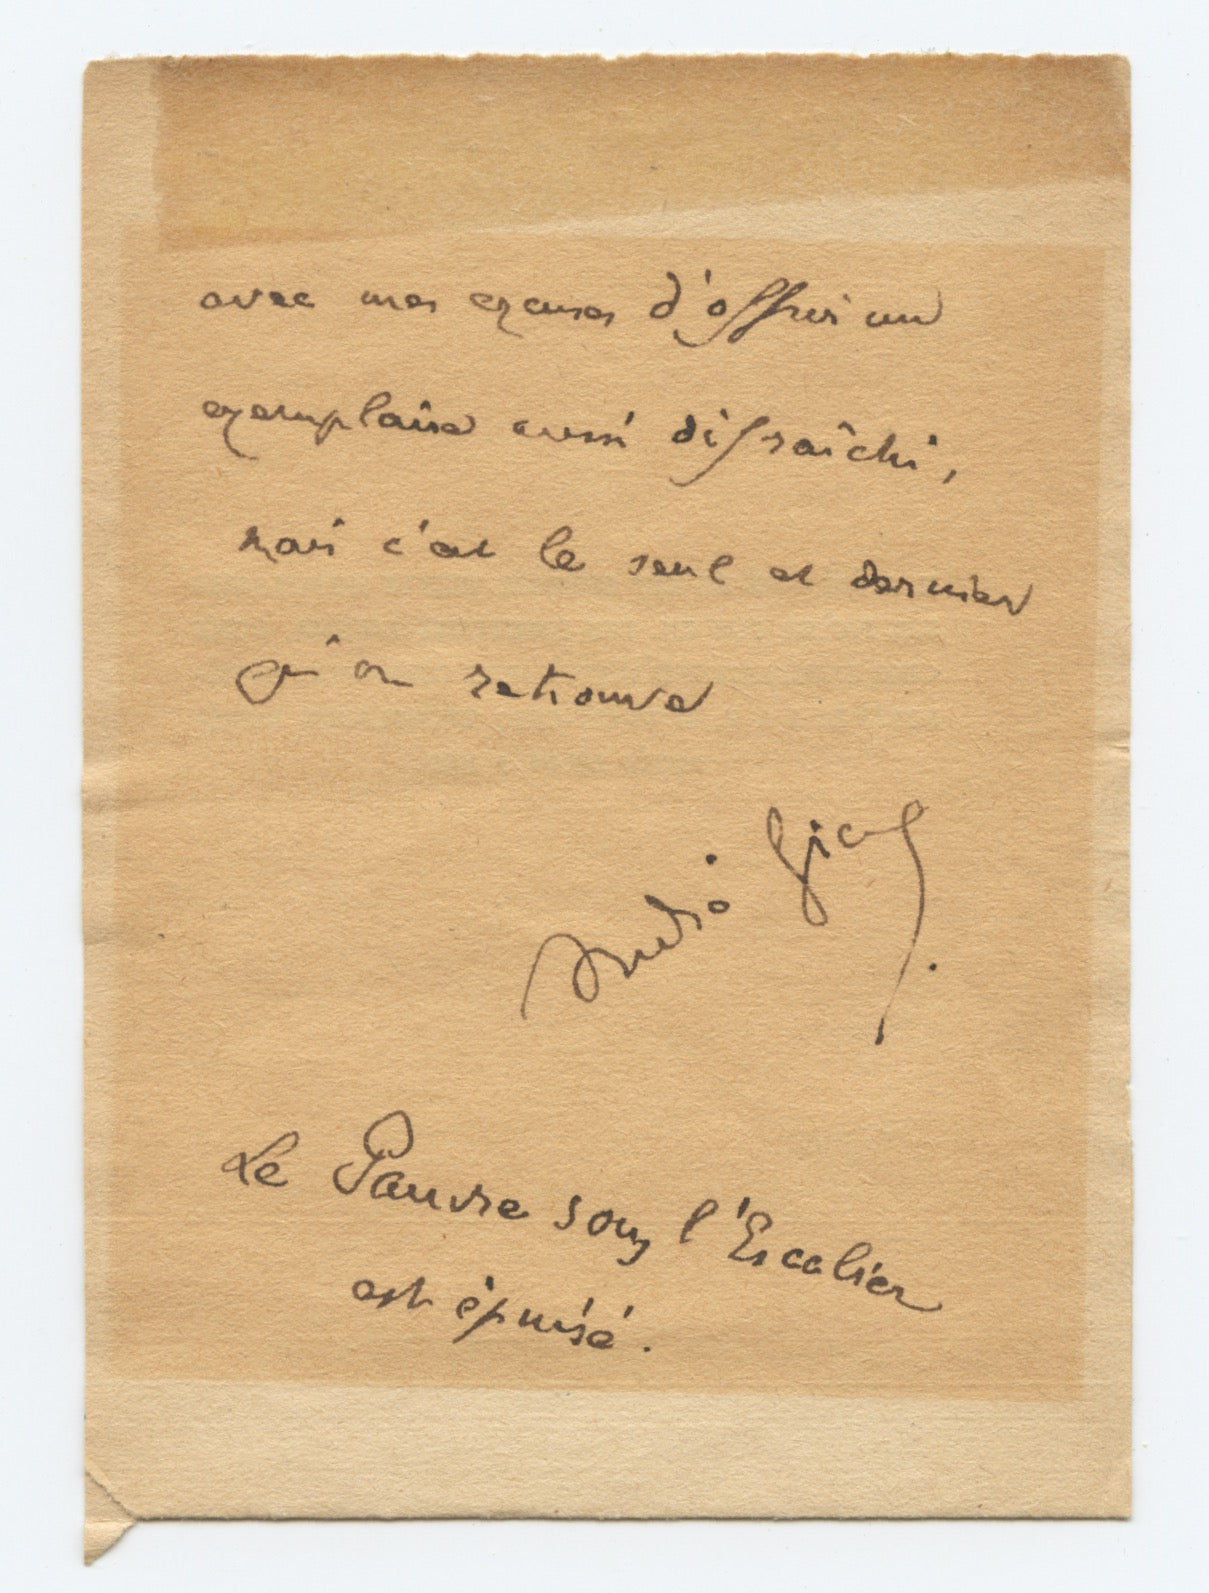 avec mes excuses d'offrir un
exemplaire aussi défraîchi,
mais c'est le seul et dernier
qu'on retrouve
André Gide.
Le Pauvre sous l'Escalier
est épuisé.